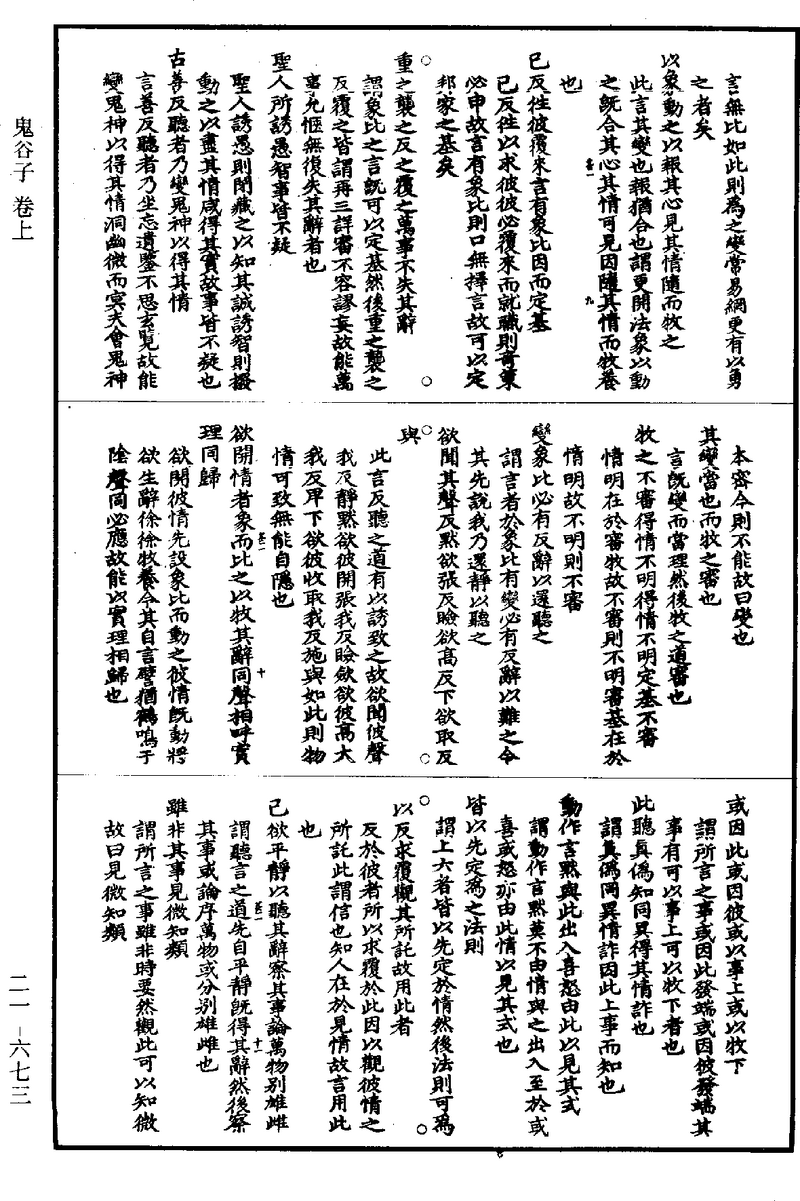 言無比如此則爲之變常易網更有以勇
之者矣
以象動之以報其心見其情隨而牧之
此言其變也報猶合也謂更開法象以動
之旣合其心其情可見因隨其情而牧養
也
己反往彼覆來言有象比因而定基
己反往以求彼彼必覆來而就職則奇策
必申故言有象比則口無擇言故可以定
邦家之基矣
重之襲之反之覆之萬事不失其辭
謂象比之言旣可以定基然後重之襲之
反覆之皆謂再三詳審不容謬妄故能萬
事允愜無復失其辭者也
聖人所誘愚智事皆不疑
聖人誘愚則閉藏之以知其誠誘智則撥
動之以盡其情咸得其實故事皆不疑也
古善反聽者乃變鬼神以得其情
言善反聽者乃坐忘遺鑒不思玄覽故能
變鬼神以得其情洞幽微而冥夫會鬼神
本密今則不能故曰變也
其變當也而牧之審也
言旣變而當理然後牧之道審也
牧之不審得情不明得情不明定基不審
情明在於審牧故不審則不明審基在於
情明故不明則不審
變象比必有反辭以還聽之
謂言者於象比有變必有反辭以難之令
其先說我乃還靜以聽之
欲聞其聲反默欲張反瞼欲高反下欲取反
與
此言反聽之道有以誘致之故欲聞彼聲
我反靜默欲彼開張我反瞼斂欲彼高大
我反卑下欲彼收取我反施與如此則物
情可致無能自隱也
欲開情者象而比之以牧其辭同聲相呼實
理同歸
欲開彼情先設象比而動之彼情旣動將
欲生辭徐徐牧養令其自言譬猶鶴鳴于
陰聲同必應故能以實理相歸也
或因此或因彼或以事上或以牧下
謂所言之事或因此發端或因彼發端其
事有可以事上可以牧下者也
此聽真僞知同異得其情詐也
謂真僞同異情詐因此上事而知也
動作言默與此出入喜怒由此以見其式
謂動作言默莫不由情與之出入至於或
喜或怒亦由此情以見其式也
皆以先定爲之法則
謂上六者皆以先定於情然後法則可爲
以反求覆觀其所託故用此者
反於彼者所以求覆於此因以觀彼情之
所託此謂信也知人在於見情故言用此
也
己欲平靜以聽其辭察其事論萬物別雄雌
謂聽言之道先自平靜旣得其辭然後察
其事或論序萬物或分別雄雌也
雖非其事見微知類
謂所言之事雖非時要然觀此可以知微
故曰見微知類
鬼谷子 卷上
二一－六七三